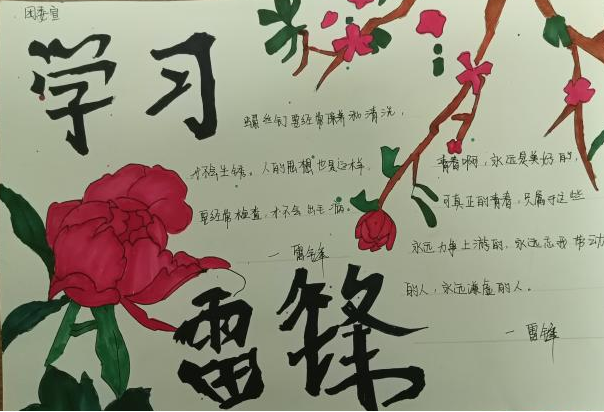 团委宣
学习
螺丝钉要经常保养和清洗，
才不会生锈。人的思想也是这样，
要经常检查，才不会出毛病。
一雷锋
青春啊，永远是美好的，
可真正的青春，只属于这些
永远力争上游的，永远忘我劳动
的人，永远谦虚的人。
一雷锋
雷锋